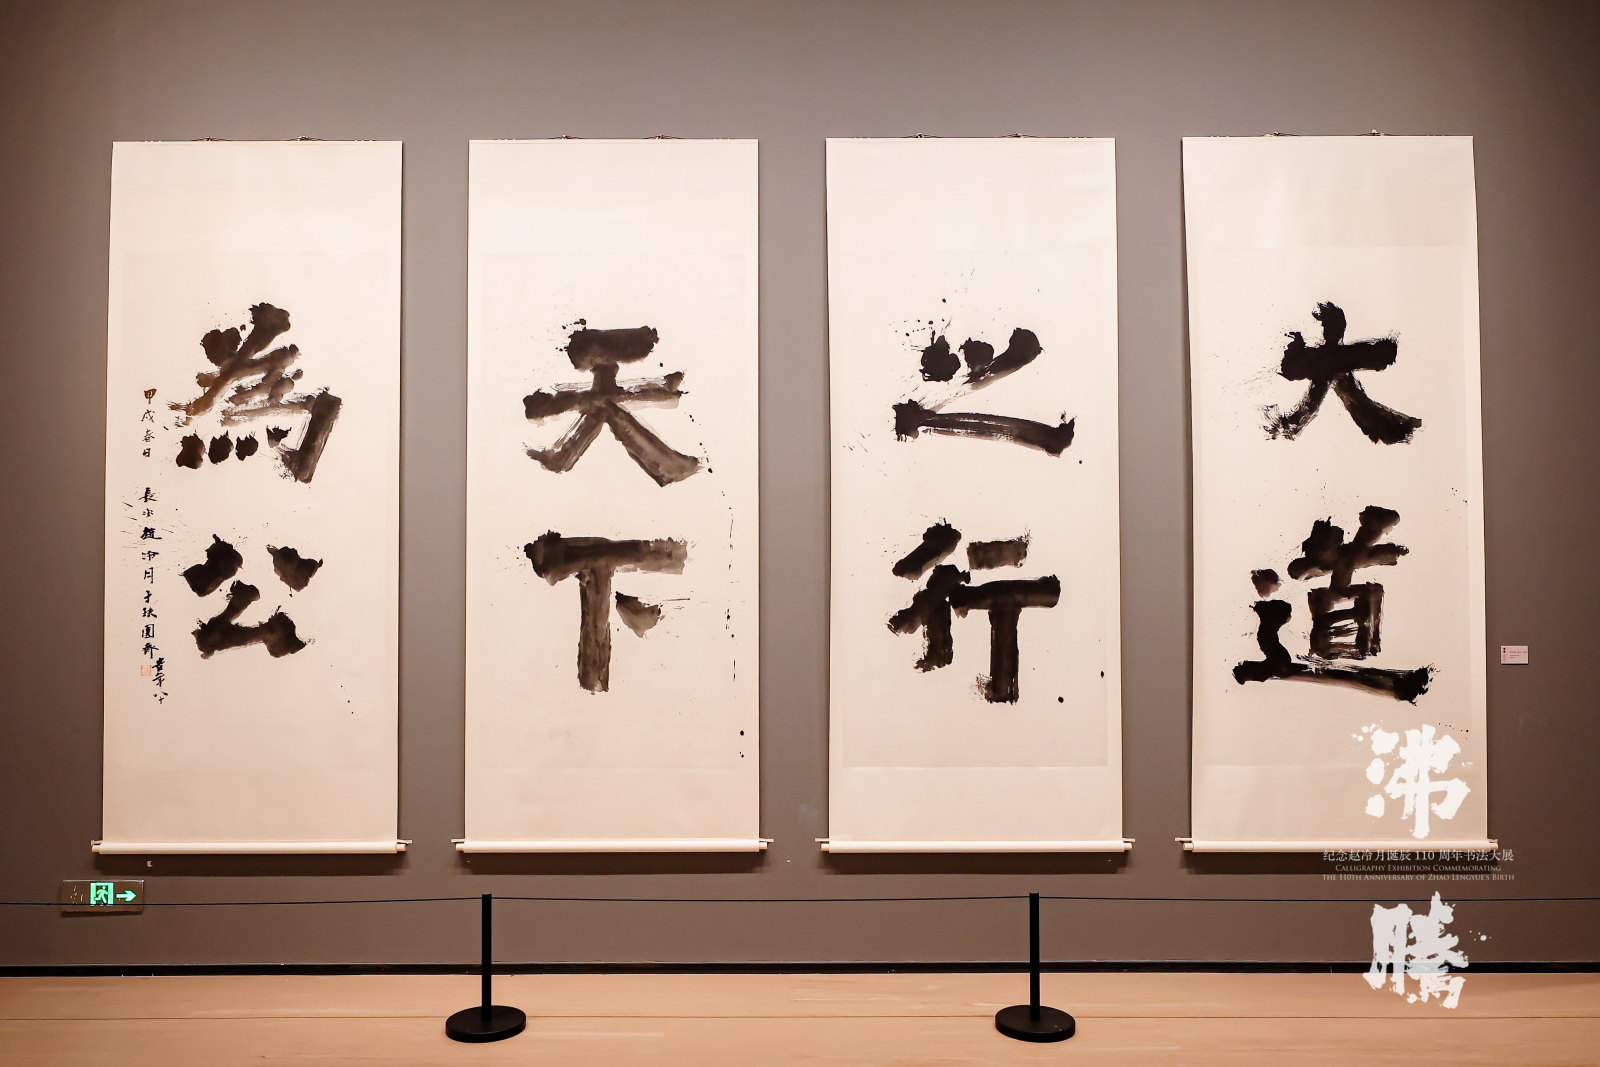 大道
之行
天下
為公
甲戌春日 長安趙冷月于玖園郵 書年八十
沸
纪念赵冷月诞辰 110 周年书法大展
CALLIGRAPHY EXHIBITION COMMEMORATING
THE 110TH ANNIVERSARY OF ZHAO LENGYUE'S BIRTH
騰